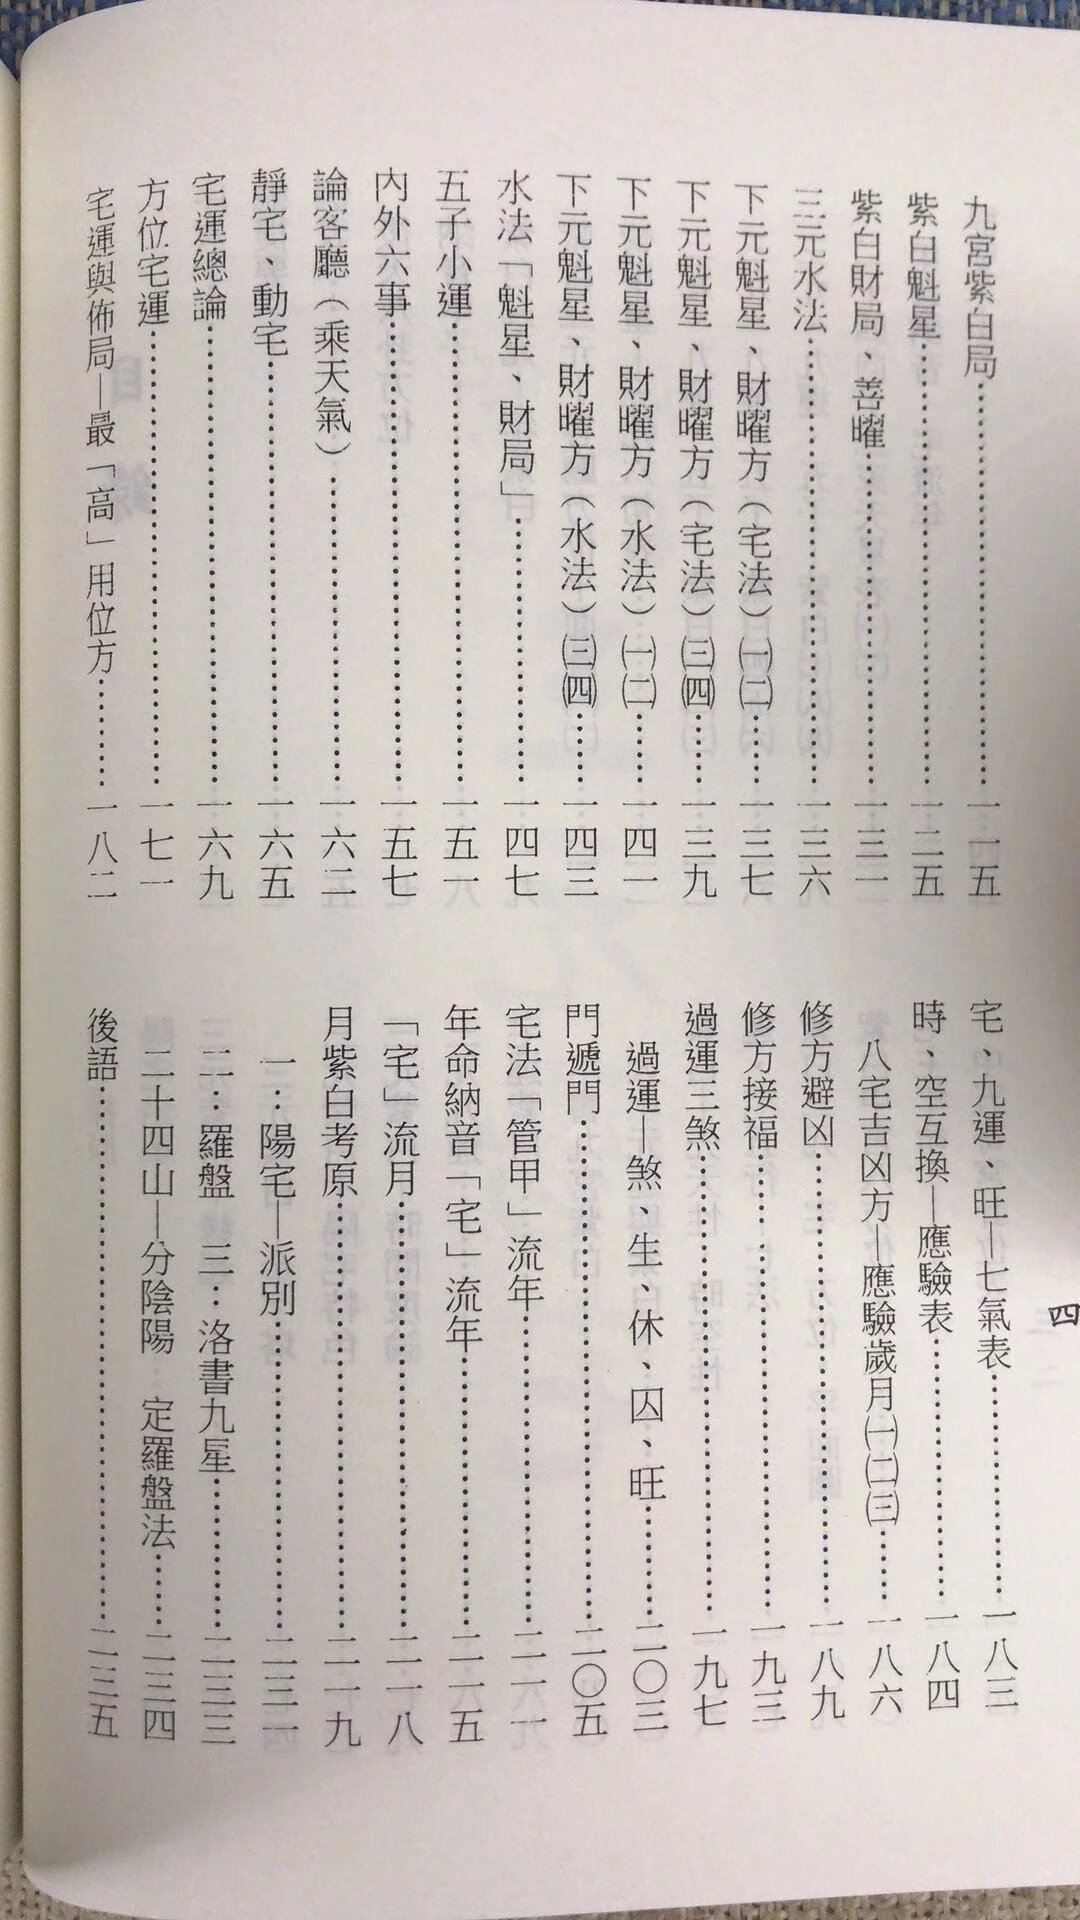 九宮紫白局……一一五
紫白魁星……一二五
紫白財局、善曜……一三一
三元水法……一三六
下元魁星、財曜方（宅法）㈠㈡……一三七
下元魁星、財曜方（宅法）㈢㈣……一三九
下元魁星、財曜方（水法）㈠㈡……一四一
下元魁星、財曜方（水法）㈢㈣……一四三
水法「魁星、財局」……一四七
五子小運……一五一
內外六事……一五七
論客廳（乘天氣）……一六二
靜宅、動宅……一六五
宅運總論……一六九
方位宅運……一七一
宅運與佈局—最「高」用位方……一八二
宅、九運、旺—七氣表……一八三
時、空互換—應驗表……一八四
八宅吉凶方—應驗歲月㈠㈡㈢……一八六
修方避凶……一八九
修方接福……一九三
過運三煞……一九七
過運—煞、生、休、囚、旺……二〇三
門遞門……二〇五
宅法「管甲」流年……二一一
年命納音「宅」流年……二一五
「宅」流月……二一八
月紫白考原……二一九
一：陽宅—派別……二三一
二：羅盤 三：洛書九星……二三三
二十四山—分陰陽 定羅盤法……二三四
後語……二三五
四